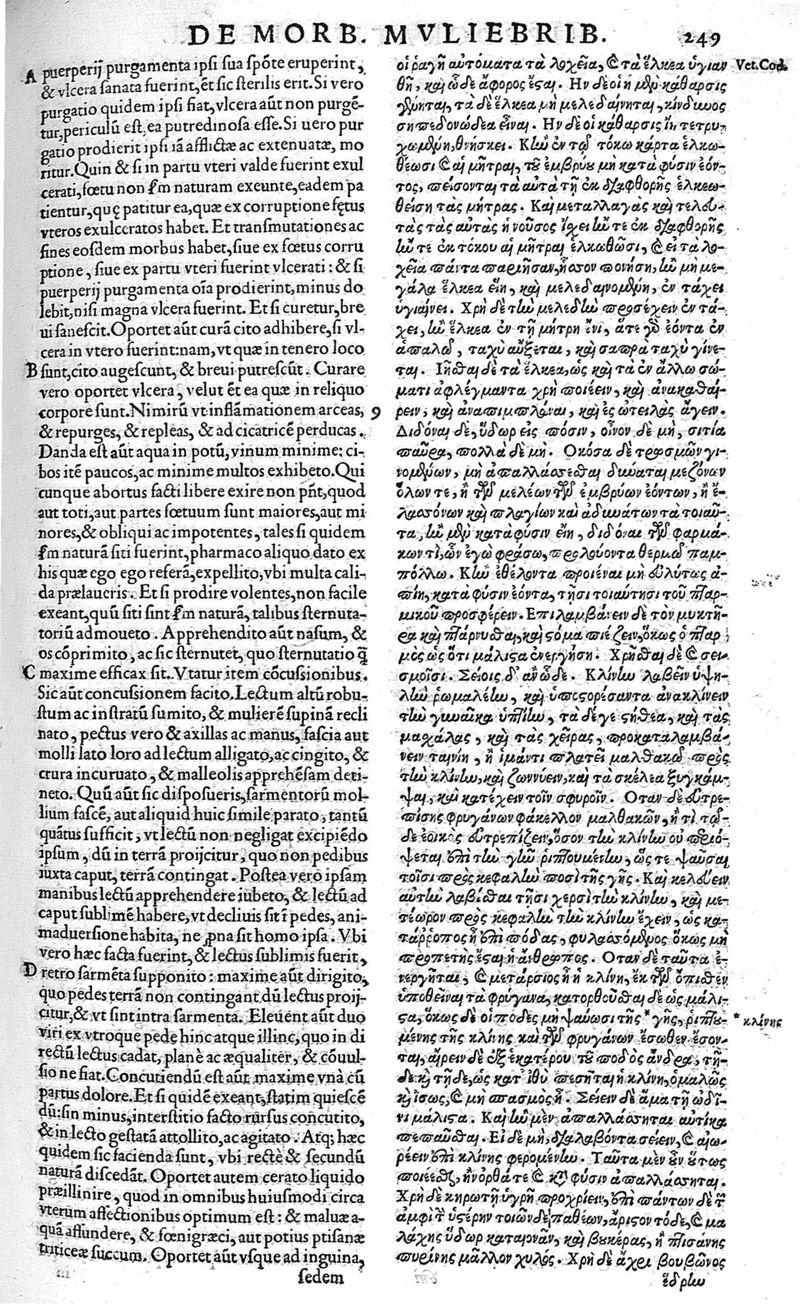 DE MORB. MVLIEBRIB. 249
A puerperij purgamenta ipsi sua spõte eruperint,
& vlcera sanata fuerint, et sic sterilis erit. Si vero
purgatio quidem ipsi fiat, vlcera aũt non purgẽ-
tur, periculũ est, ea putredinosa esse. Si uero pur
gatio prodierit ipsi iã afflictæ ac extenuatæ, mo
ritur. Quin & si in partu vteri valde fuerint exul
cerati, fœtu non scðm naturam exeunte, eadem pa
tientur, quę patitur ea, quæ ex corruptione fętus
vteros exulceratos habet. Et transmutationes ac
fines eosdem morbus habet, siue ex fœtus corru
ptione, siue ex partu vteri fuerint vlcerati: & si
puerperij purgamenta oĩa prodierint, minus do
lebit, nisi magna vlcera fuerint. Et si curetur, bre
ui sanescit. Oportet aũt curã cito adhibere, si vl-
cera in vtero fuerint: nam, vt quæ in tenero loco
B sunt, cito augescunt, & breui putrescũt. Curare
vero oportet vlcera, velut ẽt ea quæ in reliquo
corpore sunt. Nimirũ vt inflãmationem arceas, 9
& repurges, & repleas, & ad cicatricẽ perducas.
Danda est aũt aqua in potũ, vinum minime: ci-
bos itẽ paucos, ac minime multos exhibeto. Qui
cunque abortus facti libere exire non pñt, quod
aut toti, aut partes fœtuum sunt maiores, aut mi
nores, & obliqui ac impotentes, tales si quidem
scðm naturã siti fuerint, pharmaco aliquo dato ex
his quæ ego ego referã, expellito, vbi multa cali-
da prælaueris. Et si prodire volentes, non facile
exeant, quũ siti sint scðm naturã, talibus sternuta-
toriũ admoueto. Apprehendito aũt nasum, &
os cõprimito, ac sic sternutet, quo sternutatio q̃
C maxime efficax sit. Vtatur item cõcussionibus.
Sic aũt concussionem facito. Lectum altũ robu-
stum ac instratũ sumito, & mulierẽ supinã recli
nato, pectus vero & axillas ac manus, fascia aut
molli lato loro ad lectum alligato, ac cingito, &
crura incuruato, & malleolis apprehẽsam deti-
neto. Quũ aũt sic disposueris, sarmentorũ mol-
lium fascẽ, aut aliquid huic simile parato, tantũ
quãtus sufficit, vt lectũ non negligat excipiẽdo
ipsum, dũ in terrã proijcitur, quo non pedibus
iuxta caput, terrã contingat. Postea vero ipsam
manibus lectũ apprehendere iubeto, & lectũ ad
caput sublimẽ habere, vt decliuis sit ĩ pedes, ani-
maduersione habita, ne p̱na sit homo ipsa. Vbi
vero hæc facta fuerint, & lectus sublimis fuerit,
D retro sarmẽta supponito: maxime aũt dirigito,
quo pedes terrã non contingant dũ lectus proij-
citur, & vt sint intra sarmenta. Eleuent aũt duo
viri ex vtroque pede hinc atque illinc, quo in di
rectũ lectus cadat, planè ac æqualiter, & cõuul-
sio ne fiat. Concutiendũ est aũt maxime vnà cũ
partus dolore. Et si quidẽ exeant, statim quiescẽ
dũ: sin minus, interstitio facto rursus concutito,
& in lecto gestatã attollito, ac agitato. Atq; hæc
quidem sic facienda sunt, vbi rectè & secundũ
naturã discedãt. Oportet autem cerato liquido
præillinire, quod in omnibus huiusmodi circa
vterum affectionibus optimum est: & maluæ a-
quã affundere, & fœnigræci, aut potius ptisanæ
triticeæ succum. Oportet aũt vsque ad inguina,
sedem
οἱ ῥαγῇ αὐτόματα τὰ λοχεῖα, καὶ τὰ ἕλκεα ὑγιαν Vet. Cod.
θῇ, καὶ ὧδε ἄφορος ἔσται. Ην δέ οἱ ἡ μὲν κάθαρσις
γίνηται, τὰ δὲ ἕλκεα μὴ μελεδαίνηται, κίνδυνος
σηπεδονώδεα εἶναι. Ην δέ οἱ κάθαρσις ἴῃ τετρυ-
χωμένῃ, θνήσκει. Κἢν ἐν τῷ τόκῳ κάρτα ἑλκω-
θέωσι καὶ αἱ μῆτραι, τοῦ ἐμβρύου μὴ κατὰ φύσιν ἐόν-
τος, πείσονται τὰ αὐτὰ τῇ ἐκ διαφθορῆς ἑλκεω-
θείσῃ τὰς μήτρας. Καὶ μεταλλαγὰς καὶ τελευ-
τὰς τὰς αὐτὰς ἡ νοῦσος ἴσχει ἤν τε ἐκ διαφθορῆς
ἤν τε ἐκ τόκου αἱ μῆτραι ἑλκωθῶσι, καὶ εἰ τὰ λο-
χεῖα πάντα παρῄησαν, ἧσσον πονήσῃ, ἢν μὴ με-
γάλα ἕλκεα εἴη, καὶ μελεδαινομένη, ἐν τάχει
ὑγιαίνει. Χρὴ δὲ τὴν μελεδὼν προσέχειν ἐν τά-
χει, ἢν ἕλκεα ἐν τῇ μήτρῃ ἔνι, ἅτε γὰρ ἐόντα ἐν
ἁπαλῷ, ταχὺ αὔξεται, καὶ σαπρὰ ταχὺ γίνε-
ται. Ιῆσθαι δὲ τὰ ἕλκεα, ὡς καὶ τὰ ἐν ἄλλῳ σώ-
ματι ἀφλέγμαντα χρὴ ποιέειν, καὶ ἀνακαθαί-
ρειν, καὶ ἀναπιμπλάναι, καὶ ἐς ὠτειλὰς ἄγειν.
Διδόναι δὲ, ὕδωρ εἰς πόσιν, οἶνον δὲ μὴ, σιτία
παῦρα, πολλὰ δὲ μή. Οκόσα δὲ τρωσμῶν γι-
νομένων, μὴ ἀπαλλάσσεσθαι δύναται μεζόνων
ὅλων τε, ἢ τῶν μελέων τῶν ἐμβρύων ἐόντων, ἢ ἐ-
λασσόνων καὶ πλαγίων καὶ ἀδυνάτων τὰ τοιαῦ-
τα, ἢν μὲν κατὰ φύσιν εἴη, διδόναι τῶν φαρμά-
κων τι, ὧν ἐγὼ φράσω, προλούοντα θερμῷ παμ-
πόλλῳ. Κἢν ἐθέλοντα προϊέναι μὴ εὐλύτως ἀ-
πίῃ, κατὰ φύσιν ἐόντα, τῇσι τοιαύτῃσι τοῦ πταρ-
μικοῦ προσφέρειν. Επιλαμβάνειν δὲ τὸν μυκτῆ-
ρα καὶ πτάρνυσθαι, καὶ στόμα πιέζειν, ὅκως ὁ πταρ
μὸς ὡς ὅτι μάλιστα ἐνεργήσῃ. Χρῆσθαι δὲ καὶ σει-
σμοῖσι. Σείοις δ' ἂν ὧδε. Κλίνην λαβεῖν ὑψη-
λὴν ῥωμαλέην, καὶ ὑποστορέσαντα ἀνακλίνειν
τὴν γυναῖκα ὑπτίην, τὰ δέ γε στήθεα, καὶ τὰς
μασχάλας, καὶ τὰς χεῖρας, προκαταλαμβά-
νειν ταινίῃ, ἢ ἱμάντι πλατεῖ μαλθακῷ πρὸς
τὴν κλίνην, καὶ ζωννύειν, καὶ τὰ σκέλεα ξυγκάμ-
ψαι, καὶ κατέχειν τοῖν σφυροῖν. Οταν δὲ εὐτρε-
πίσῃς φρυγάνων φάκελλον μαλθακῶν, ἤ τι τῷ-
δε ἐοικὸς εὐτρεπίζειν, ὅσον τὴν κλίνην οὐ περιό-
ψεται ἐπὶ τὴν γῆν ῥιπτουμένην, ὥς τε ψαῦσαι
τοῖσι πρὸς κεφαλὴν ποσὶ τῆς γῆς. Καὶ κελεύειν
αὐτὴν λαβέσθαι τῇσι χερσὶ τὴν κλίνην, καὶ με-
τέωρον πρὸς κεφαλὴν τὴν κλίνην ἔχειν, ὡς κα-
τάρροπος ᾖ ἐπὶ πόδας, φυλασσόμενος ὅκως μὴ
προπετὴς ἔσται ἡ ἄνθρωπος. Οταν δὲ ταῦτα ἐ-
νεργῆται, καὶ μετάρσιος ᾖ ἡ κλίνη, ἐκ τῶν ὄπισθεν
ὑποθεῖναι τὰ φρύγανα, κατορθοῦσθαι δὲ ὡς μάλι-
στα, ὅκως δὲ οἱ πόδες μὴ ψαύωσι τῆς *γῆς, ῥιπτου- * κλίνης
μένης τῆς κλίνης καὶ τῶν φρυγάνων ἔσωθεν ἔσον-
ται, αἴρειν δὲ ἐξ ἑκατέρου τοῦ ποδὸς ἄνδρα, τῇ-
δε καὶ τῇδε, ὡς κατ' ἰθὺ πεσῆται ἡ κλίνη, ὁμαλῶς
καὶ ἴσως, καὶ μὴ σπασμὸς ᾖ. Σείειν δὲ ἅμα τῇ ὠδῖ-
νι μάλιστα. Καὶ ἢν μὲν ἀπαλλάσσηται αὐτίκα
πεπαῦσθαι. Εἰ δὲ μὴ, διαλαβόντα σείειν, καὶ αἰω-
ρέειν ἐπὶ κλίνης φερομένην. Ταῦτα μὲν οὖν οὕτως
ποιέεται, ἢν ὀρθά τε καὶ κατὰ φύσιν ἀπαλλάσσηται.
Χρὴ δὲ κηρωτῇ ὑγρῇ προχρίειν, ἐπὶ πάντων δὲ τῶν
ἀμφὶ τῶν ὑστέρην τοιῶνδε παθέων, ἄριστον τόδε, καὶ μα
λάχης ὕδωρ καταχέειν, καὶ βουκέρας, ἢ πτισάνης
πυρίνης μᾶλλον χυλός. Χρὴ δὲ ἄχρι βουβῶνος
ἕδρην